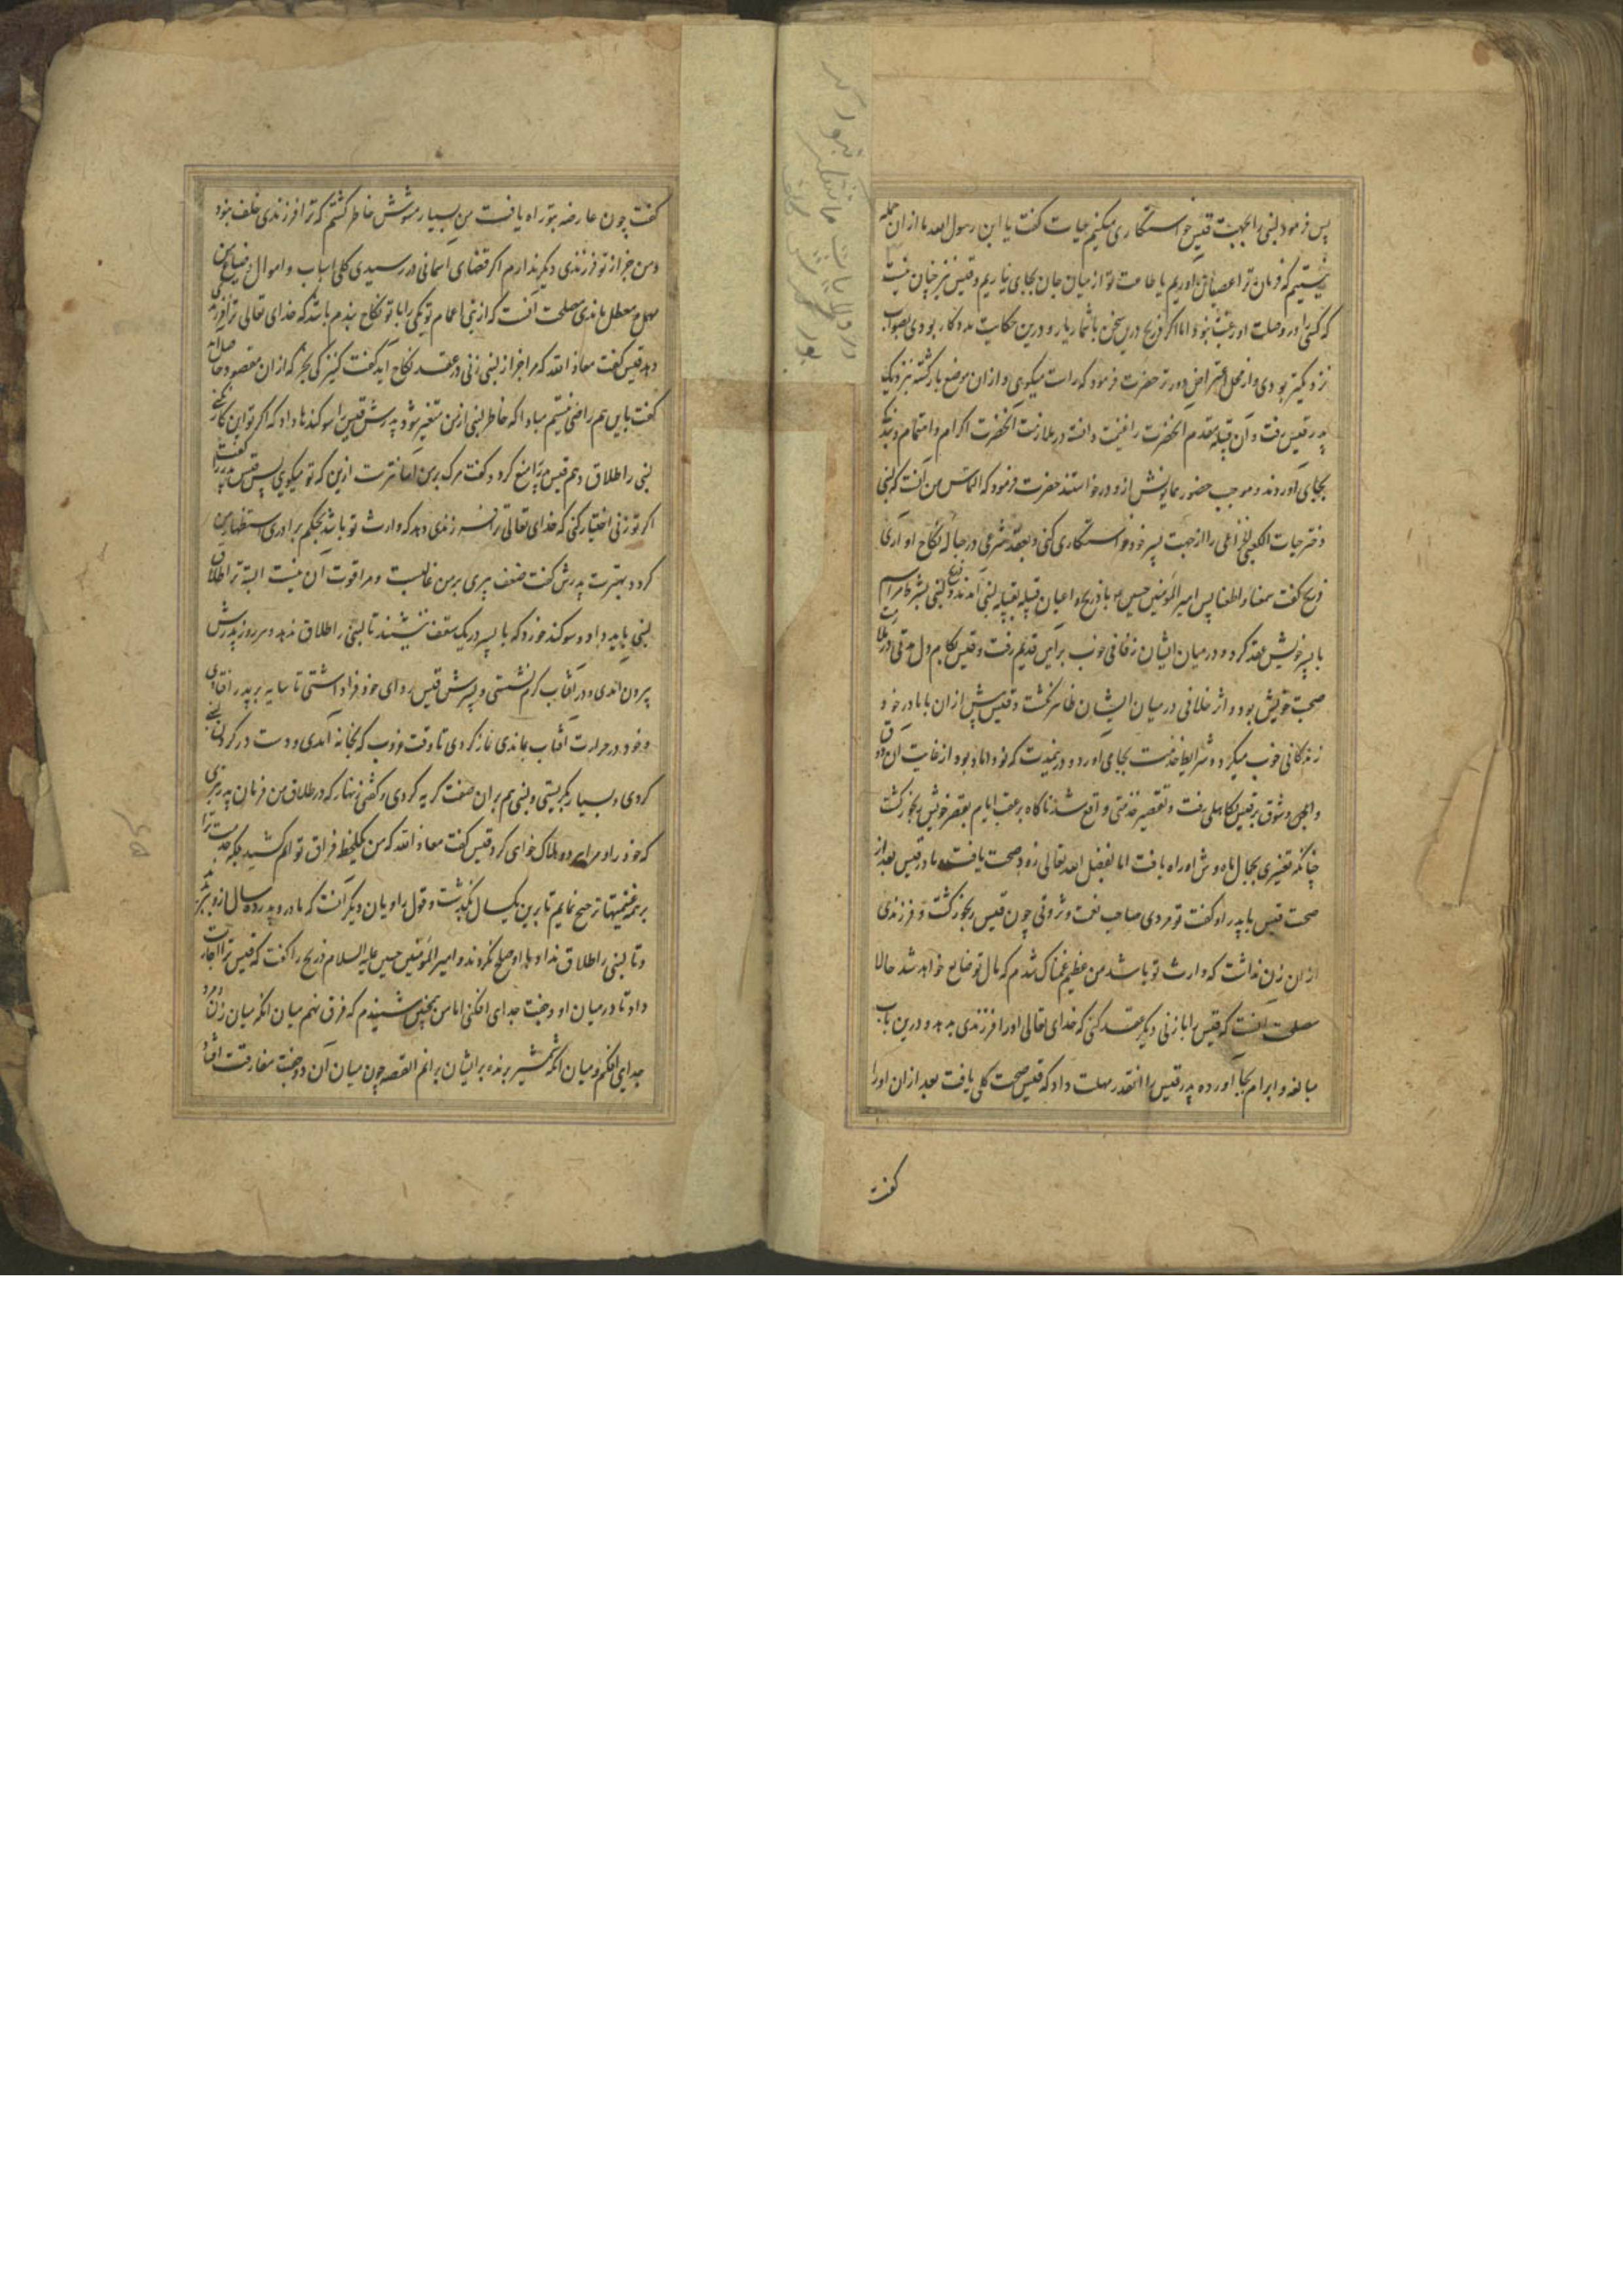 پس فرمود لبنی را بجهت قیس خواستکاری میکنیم حیات کفت یا ابن رسول الله ما از ان جمله
نیستیم که فرمان ترا عصیان اوریم یا طاعت تو از میان جان بجای نیاریم و قیس نیز چنان نیست
که کسی را در وصلت او رغبت نبود اما اکر ذریح درین سخن با شما یار و درین حکایت مددکار بودی بصواب
نزدیکتر بودی و از محل اعتراض دورتر حضرت فرمود که راست میکوی و از ان موضع بازکشته نزدیک
پدر قیس رفت و آن قبیله مقدم انحضرت را غنیمت دانسته در ملازمت انحضرت اکرام و اهتمام
بجای اوردند و موجب حضور همایونش ازو درخواستند حضرت فرمود که التماس من آنست که لبنی
دختر حیات الکعبی الخزاعی را از جهت پسر خود خواستکاری کنی و بعقد شرعی در حباله نکاح او اری
ذریح کفت سمعنا و اطعنا پس امیر المومنین حسین با ذریح و اعیان قبیله بقبیله لبنی آمدند و ذریح لبنی بشرط مراسم
با پسر خویش عقد کرد و در میان ایشان زفافی خوب بر آیین قدیم رفت و قیس بکام دل مدتی در ملازمت
صحبت خویش بود و اثر خلافی در میان ایشان ظاهر نکشت و قیس پیش از ان با مادر خود
زندکانی خوب میکرد و شرایط خدمت بجا می اورد و درینمدت که نو داماد بود از غایت ان ذوق
و انجان شوق بر قیس تکاهلی رفت و تقصیر خدمتی واقع شد ناکاه بر عقب ایام بقصر خویش رنجور کشت
چنانکه تغیری بجمال ماه وش او راه یافت اما بفضل الله تعالی زود صحت یافت مادر قیس بعد از
صحت قیس با پدر او کفت تو مردی صاحب نعمت و ثروتی چون قیس رنجور کشت و فرزندی
از ان زن نداشت که وارث تو باشد من عظیم غمناک شدم که مال تو ضایع خواهد شد حالا
مصلحت انست که قیس را با زنی دیکر عقد کنی که خدای تعالی او را فرزندی بدهد و درین باب
مبالغه و ابرام بجا اورده پدر قیس را انقدر مهلت داد که قیس صحت کلی یافت بعد از ان او را
کفت
کفت چون عارضه بتو راه یافت من بسیار مشوش خاطر کشتم که ترا فرزندی خلف نبود
و من جز از تو فرزندی دیکر ندارم اکر قضای اسمانی در رسیدی کلی اسباب و اموال و ضیاع من
مهمل و معطل ماندی مصلحت آنست که از بنی اعمام تو یکی را با تو نکاح بندم باشد که خدای تعالی ترا فرزندی
دهد قیس کفت معاذ الله که مرا جز از لبنی زنی در عقد نکاح آید کفت کنیزکی بخر که از ان مقصود حاصل آید
کفت باین هم راضی نیستم مبادا که خاطر لبنی از من متغیر شود پدرش قیس را سوکندها داد که اکر تو این کار نکنی
لبنی را طلاق دهم قیس پدر را منع کرد و کفت مرک بر من آسانترست ازین که تو میکوی پس قیس پدر را کفت
اکر تو زنی اختیار کنی که خدای تعالی ترا فرزندی دهد که وارث تو باشد بحکم برادری استظهار من
کردد بهترست پدرش کفت ضعف پیری بر من غالبست و مرا قوت ان نیست البته ترا طلاق
لبنی باید داد و سوکند خورد که با پسر در یک سقف ننشیند تا لبنی را طلاق ندهد و هر روز پدرش
بیرون آمدی و در آفتاب کرم نشستی و پسرش قیس ردای خود فراداشتی تا سایه بر پدر افتادی
و خود در حرارت افتاب بماندی نماز کردی تا وقت غروب که بخانه آمدی و دست در کردن لبنی
کردی و بسیار بکریستی و لبنی هم بران صفت کریه کردی و کفتی زنهار که در طلاق من فرمان پدر نبری
که خود را و مرا هر دو هلاک خواهی کرد قیس کفت معاذ الله که من یکلحظه فراق تو الم کشیده بلکه خدمت ترا
بر همه نعمتها ترجیح نمایم تا برین یکسال بکذشت و قول راویان دیکر آنست که مادر و پدر ده سال ازو
و تا لبنی را طلاق نداد با او صلح نکردند و امیر المومنین حسین علیه السلام ذریح را کفت که قیس ترا اجازت
داد تا در میان او و جفت جدای افکنی اما من همچنین شنیدم که فرق نهم میان انکه میان زن و مرد
جدای افکنم و میان انکه شمشیر برنده بر ایشان برانم القصه چون میان آن دو جفت مفارقت افتاد